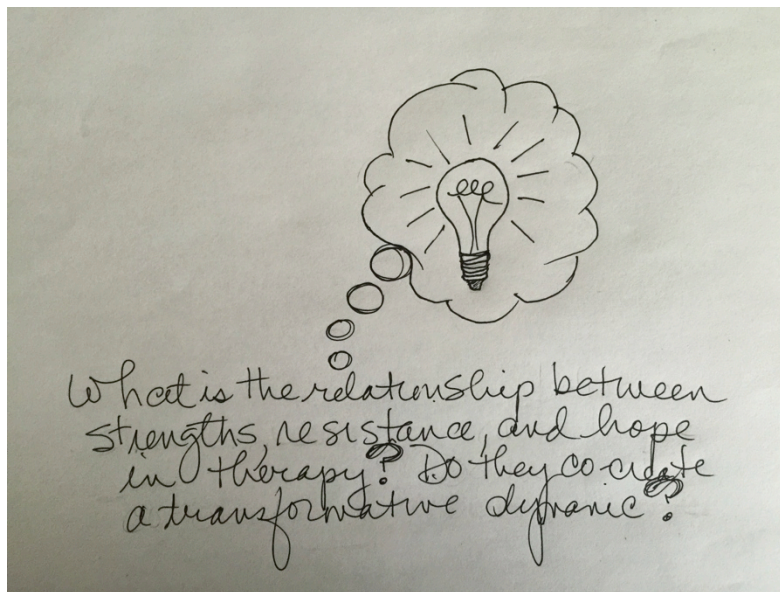 What is the relationship between
strengths, resistance, and hope
in therapy? Do they co-create
a transformative dynamic?